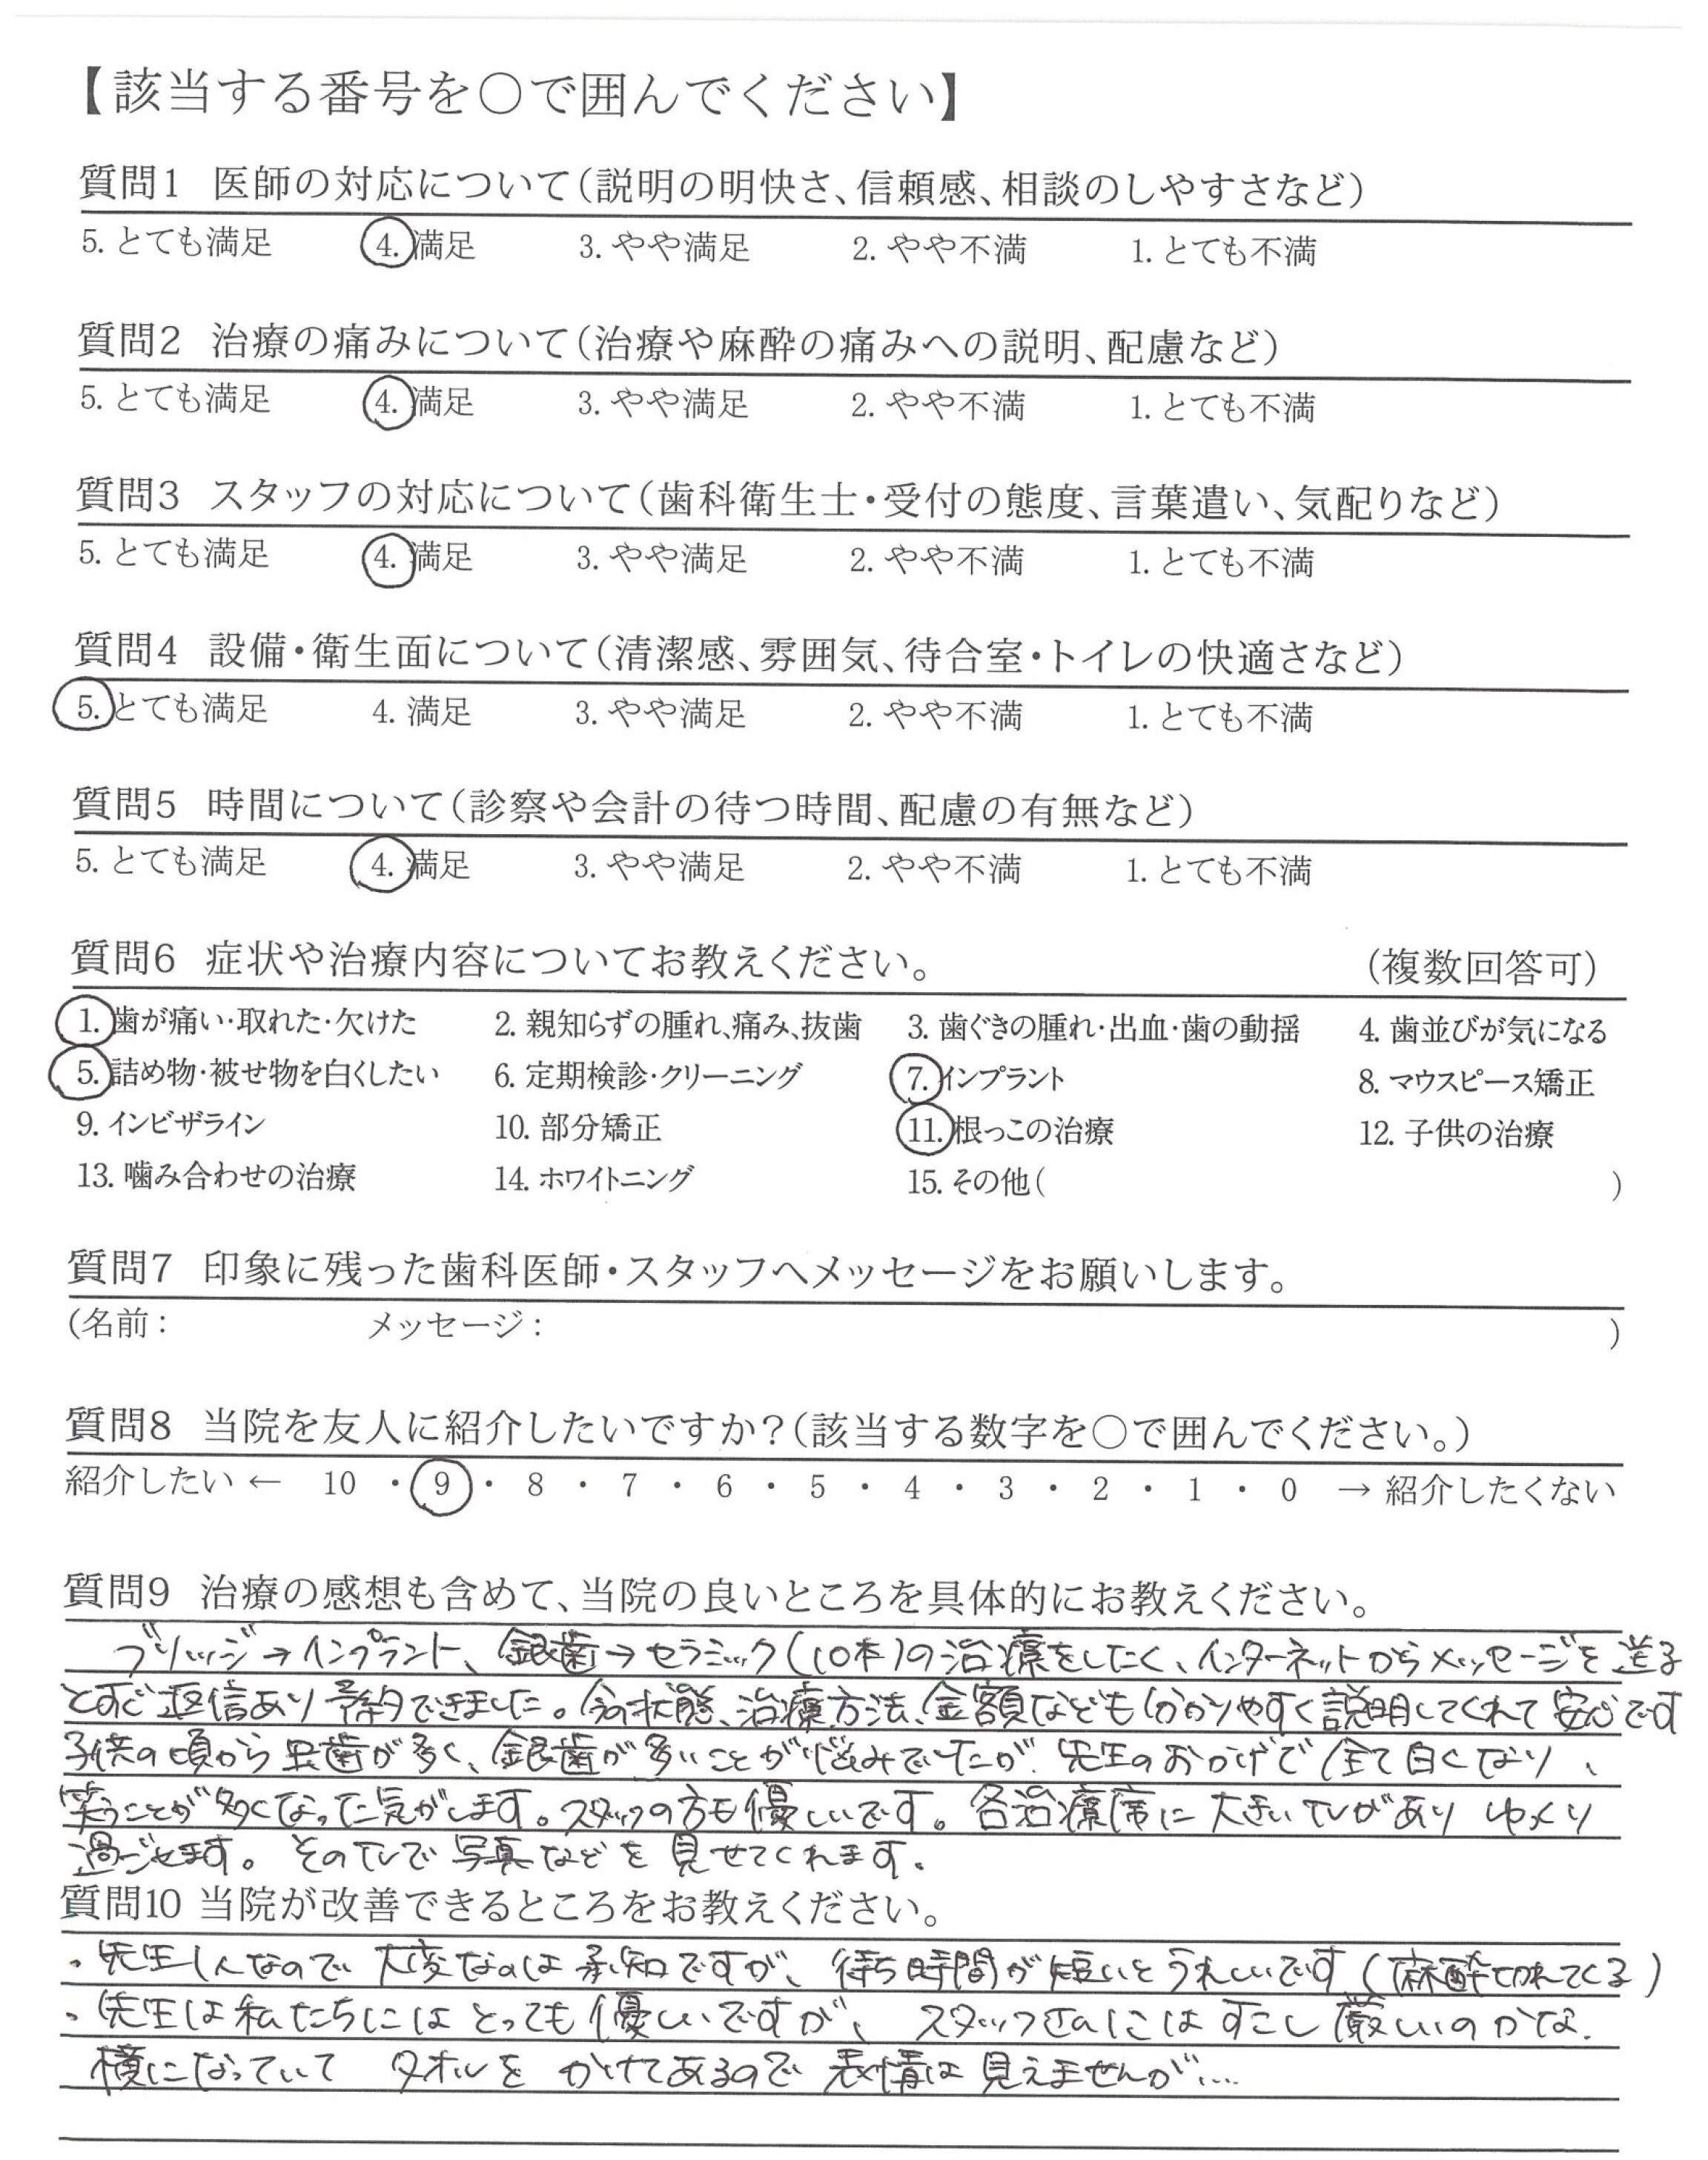 【該当する番号を○で囲んでください】
質問1 医師の対応について(説明の明快さ、信頼感、相談のしやすさなど)
5. とても満足 4. 満足 3. やや満足 2. やや不満 1. とても不満
質問2 治療の痛みについて(治療や麻酔の痛みへの説明、配慮など)
5. とても満足 4. 満足 3. やや満足 2. やや不満 1. とても不満
質問3 スタッフの対応について(歯科衛生士・受付の態度、言葉遣い、気配りなど)
5. とても満足 4. 満足 3. やや満足 2. やや不満 1. とても不満
質問4 設備・衛生面について(清潔感、雰囲気、待合室・トイレの快適さなど)
5. とても満足 4. 満足 3. やや満足 2. やや不満 1. とても不満
質問5 時間について(診察や会計の待つ時間、配慮の有無など)
5. とても満足 4. 満足 3. やや満足 2. やや不満 1. とても不満
質問6 症状や治療内容についてお教えください。 (複数回答可)
1. 歯が痛い・取れた・欠けた 2. 親知らずの腫れ、痛み、抜歯 3. 歯ぐきの腫れ・出血・歯の動揺 4. 歯並びが気になる
5. 詰め物・被せ物を白くしたい 6. 定期検診・クリーニング 7. インプラント 8. マウスピース矯正
9. インビザライン 10. 部分矯正 11. 根っこの治療 12. 子供の治療
13. 噛み合わせの治療 14. ホワイトニング 15. その他( )
質問7 印象に残った歯科医師・スタッフへメッセージをお願いします。
(名前: メッセージ: )
質問8 当院を友人に紹介したいですか?(該当する数字を○で囲んでください。)
紹介したい ← 10 ・ 9 ・ 8 ・ 7 ・ 6 ・ 5 ・ 4 ・ 3 ・ 2 ・ 1 ・ 0 → 紹介したくない
質問9 治療の感想も含めて、当院の良いところを具体的にお教えください。
ブリッジ→インプラント、銀歯→セラミック(10本)の治療をしたく、インターネットからメッセージを送る
とすぐ返信あり予約できました。今の状態、治療方法、金額なども分かりやすく説明してくれて安心です
子供の頃から虫歯が多く、銀歯が多いことが悩みでしたが、先生のおかげで全て白くなり、
笑うことが多くなった気がします。スタッフの方も優しいです。各治療席に大きいTVがありゆっくり
過ごせます。そのTVで写真などを見せてくれます。
質問10 当院が改善できるところをお教えください。
・先生1人なので大変なのは承知ですが、待ち時間が短いとうれしいです(麻酔切れてくる)
・先生は私たちにはとっても優しいですが、スタッフさんにはすこし厳しいのかな.
横になっていてタオルをかけてあるので表情は見えませんが…